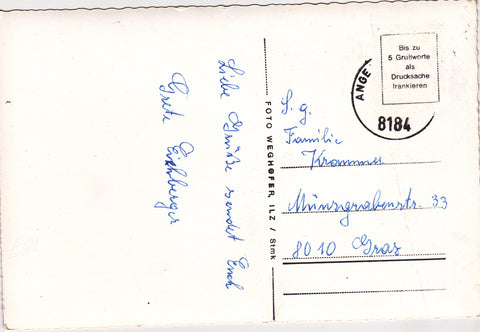 Liebe Grüße sendet Euch
Grete Eichberger
FOTO WEGHOFER, ILZ / Stmk
Bis zu
5 Grußworte
als
Drucksache
frankieren
ANGE
8184
S. g.
Familie
Krammer
Münzgrabenstr. 33
8010 Graz